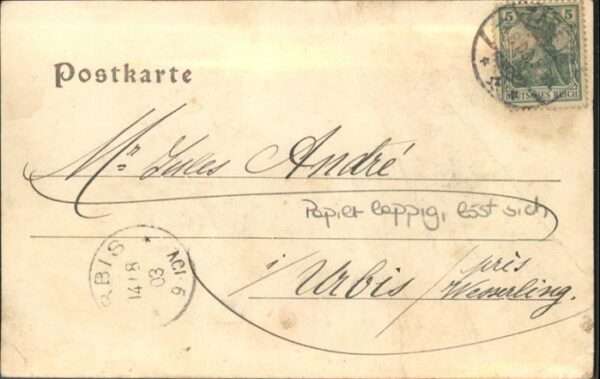 5 5
DEUTSCHES REICH
Postkarte
Mr Jules André
Papier lappig, löst sich
i/ Urbis / près
Wesserling.
URBIS
14 8
03